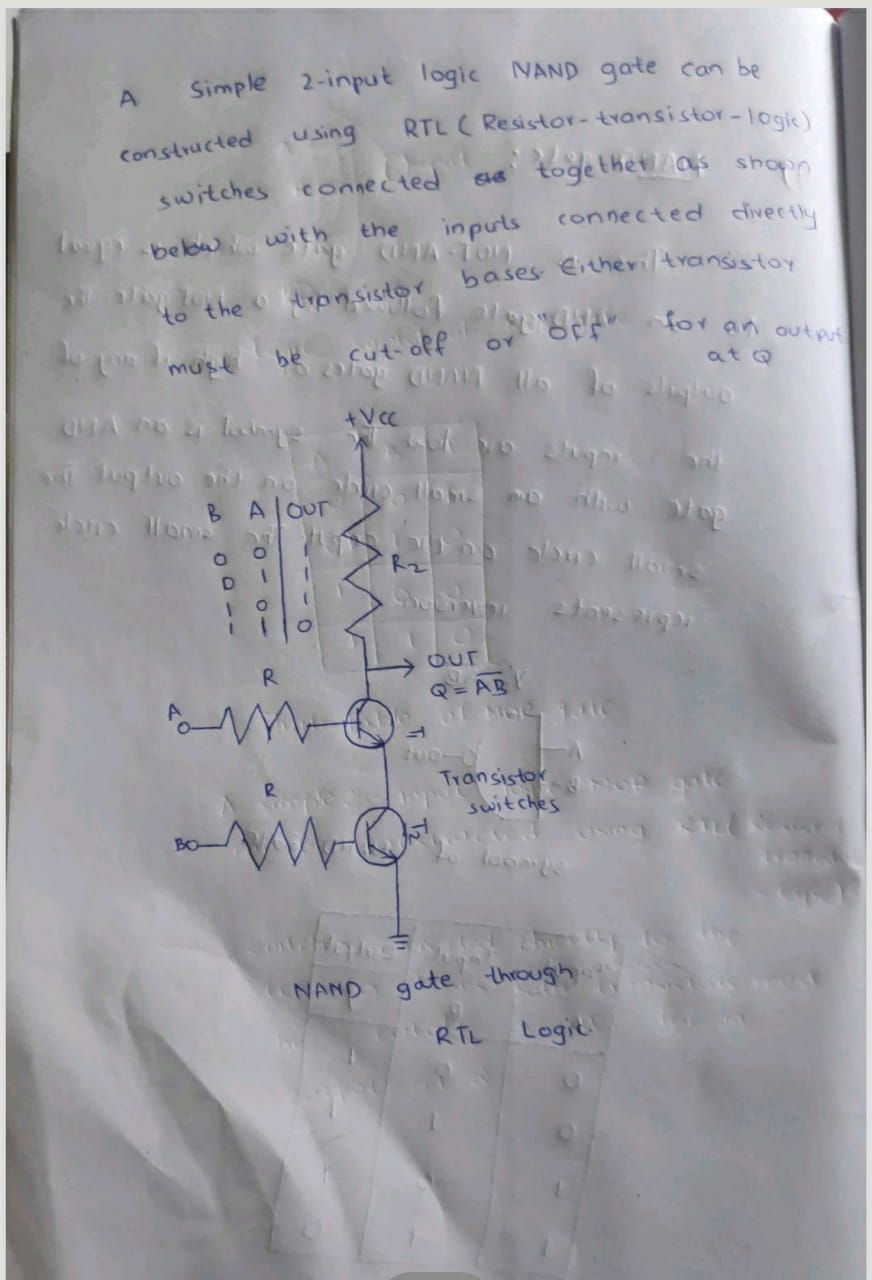 A Simple 2-input logic NAND gate can be
constructed using RTL (Resistor-transistor-logic)
switches connected together as shown
below with the inputs connected directly
to the transistor bases. Either transistor
must be cut-off or "OFF" for an output
at Q
+Vcc
B A OUT
0 0 1
0 1 1
1 0 1
1 1 0
R2
OUT
Q = A̅B̅
R
A
T1
Transistor
switches
R
B
T2
NAND gate through
RTL Logic.